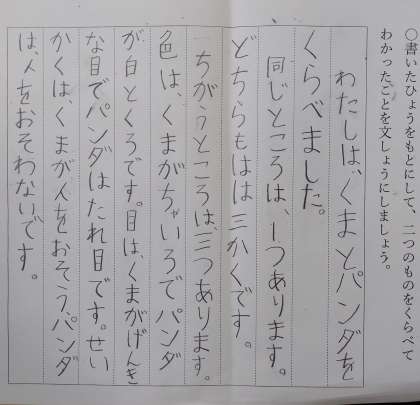 ○書いたひょうをもとにして、二つのものをくらべて
わかったことを文しょうにしましょう。
わたしは、くまとパンダを
くらべました。
同じところは、一つあります。
どちらもはは三かくです。
ちがうところは、三つあります。
色は、くまがちゃいろでパンダ
が白とくろです。目は、くまがげんき
な目でパンダはたれ目です。せい
かくは、くまが人をおそう、パンダ
は、人をおそわないです。